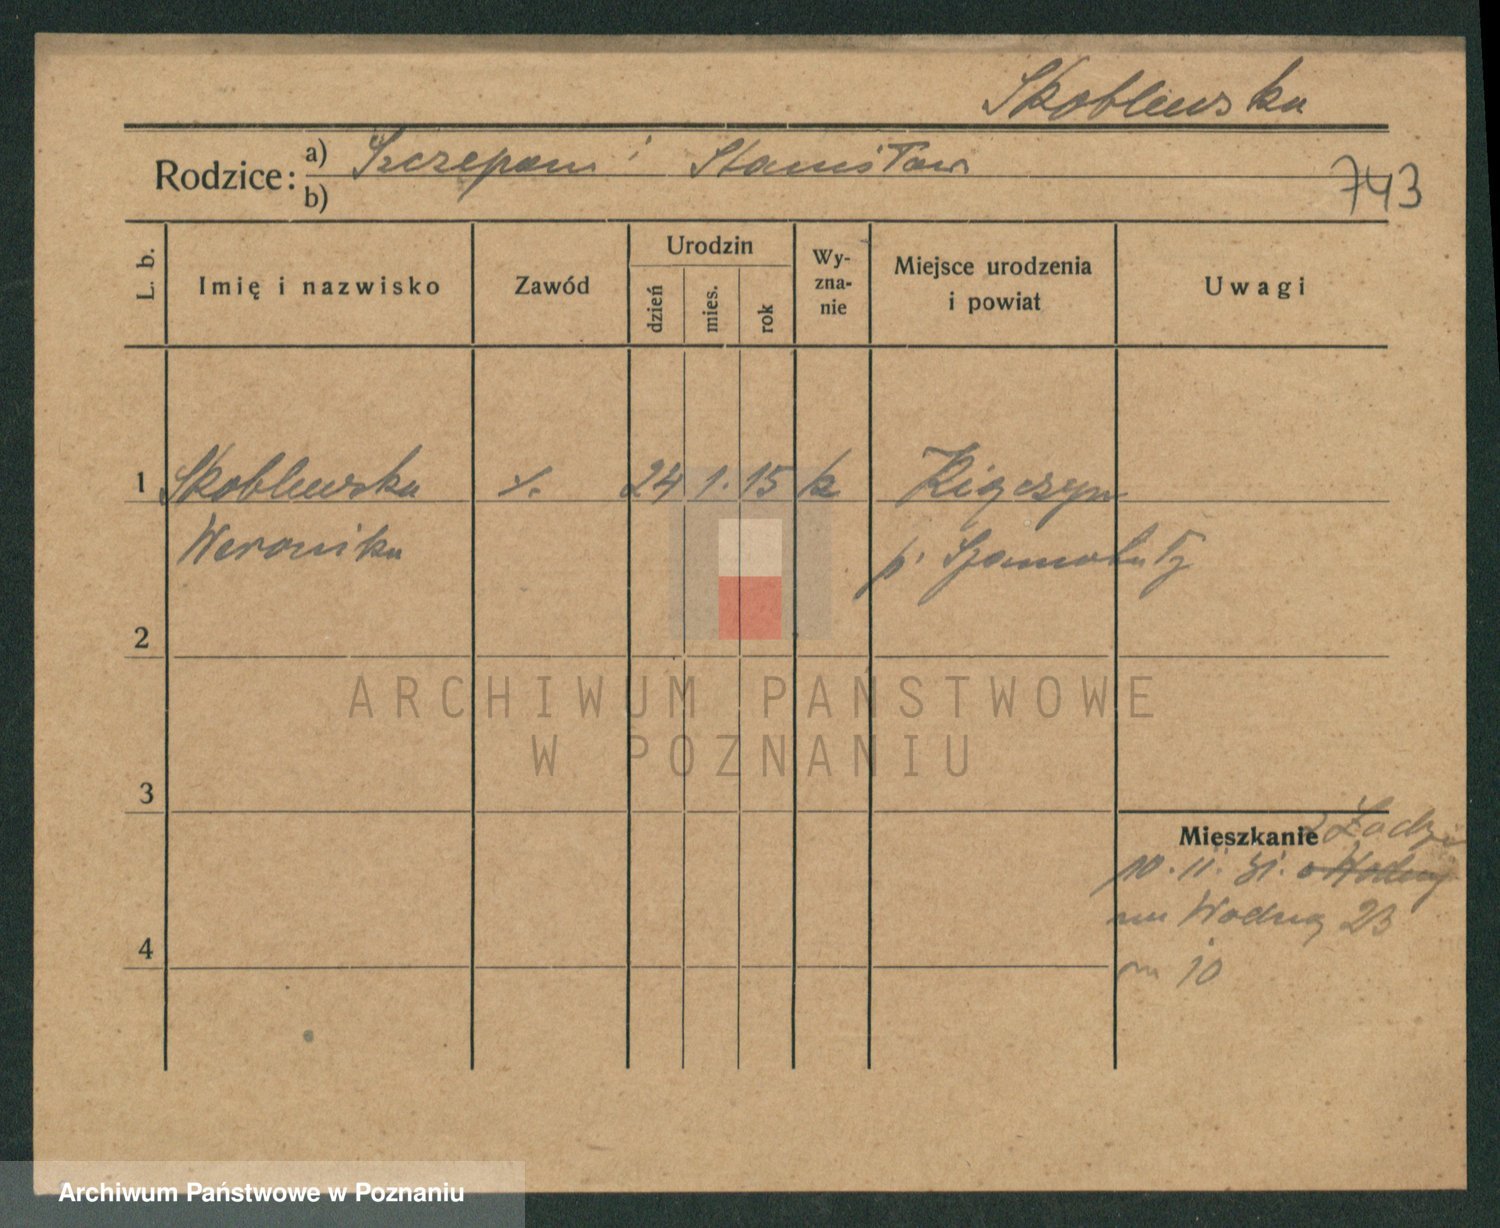 Skoblewska
Rodzice: a) Szczepan i Stanisława
b)
743
L. b.
Imię i nazwisko
Zawód
Urodzin
dzień
mies.
rok
Wy-
zna-
nie
Miejsce urodzenia
i powiat
Uwagi
1 Skoblewska 24 1. 15 k
Weronika
p. Szamotuły
2
ARCHIWUM PAŃSTWOWE
W POZNANIU
3
Mieszkanie
10. 11. 31.
na Wodną 23
m 10
4
Archiwum Państwowe w Poznaniu